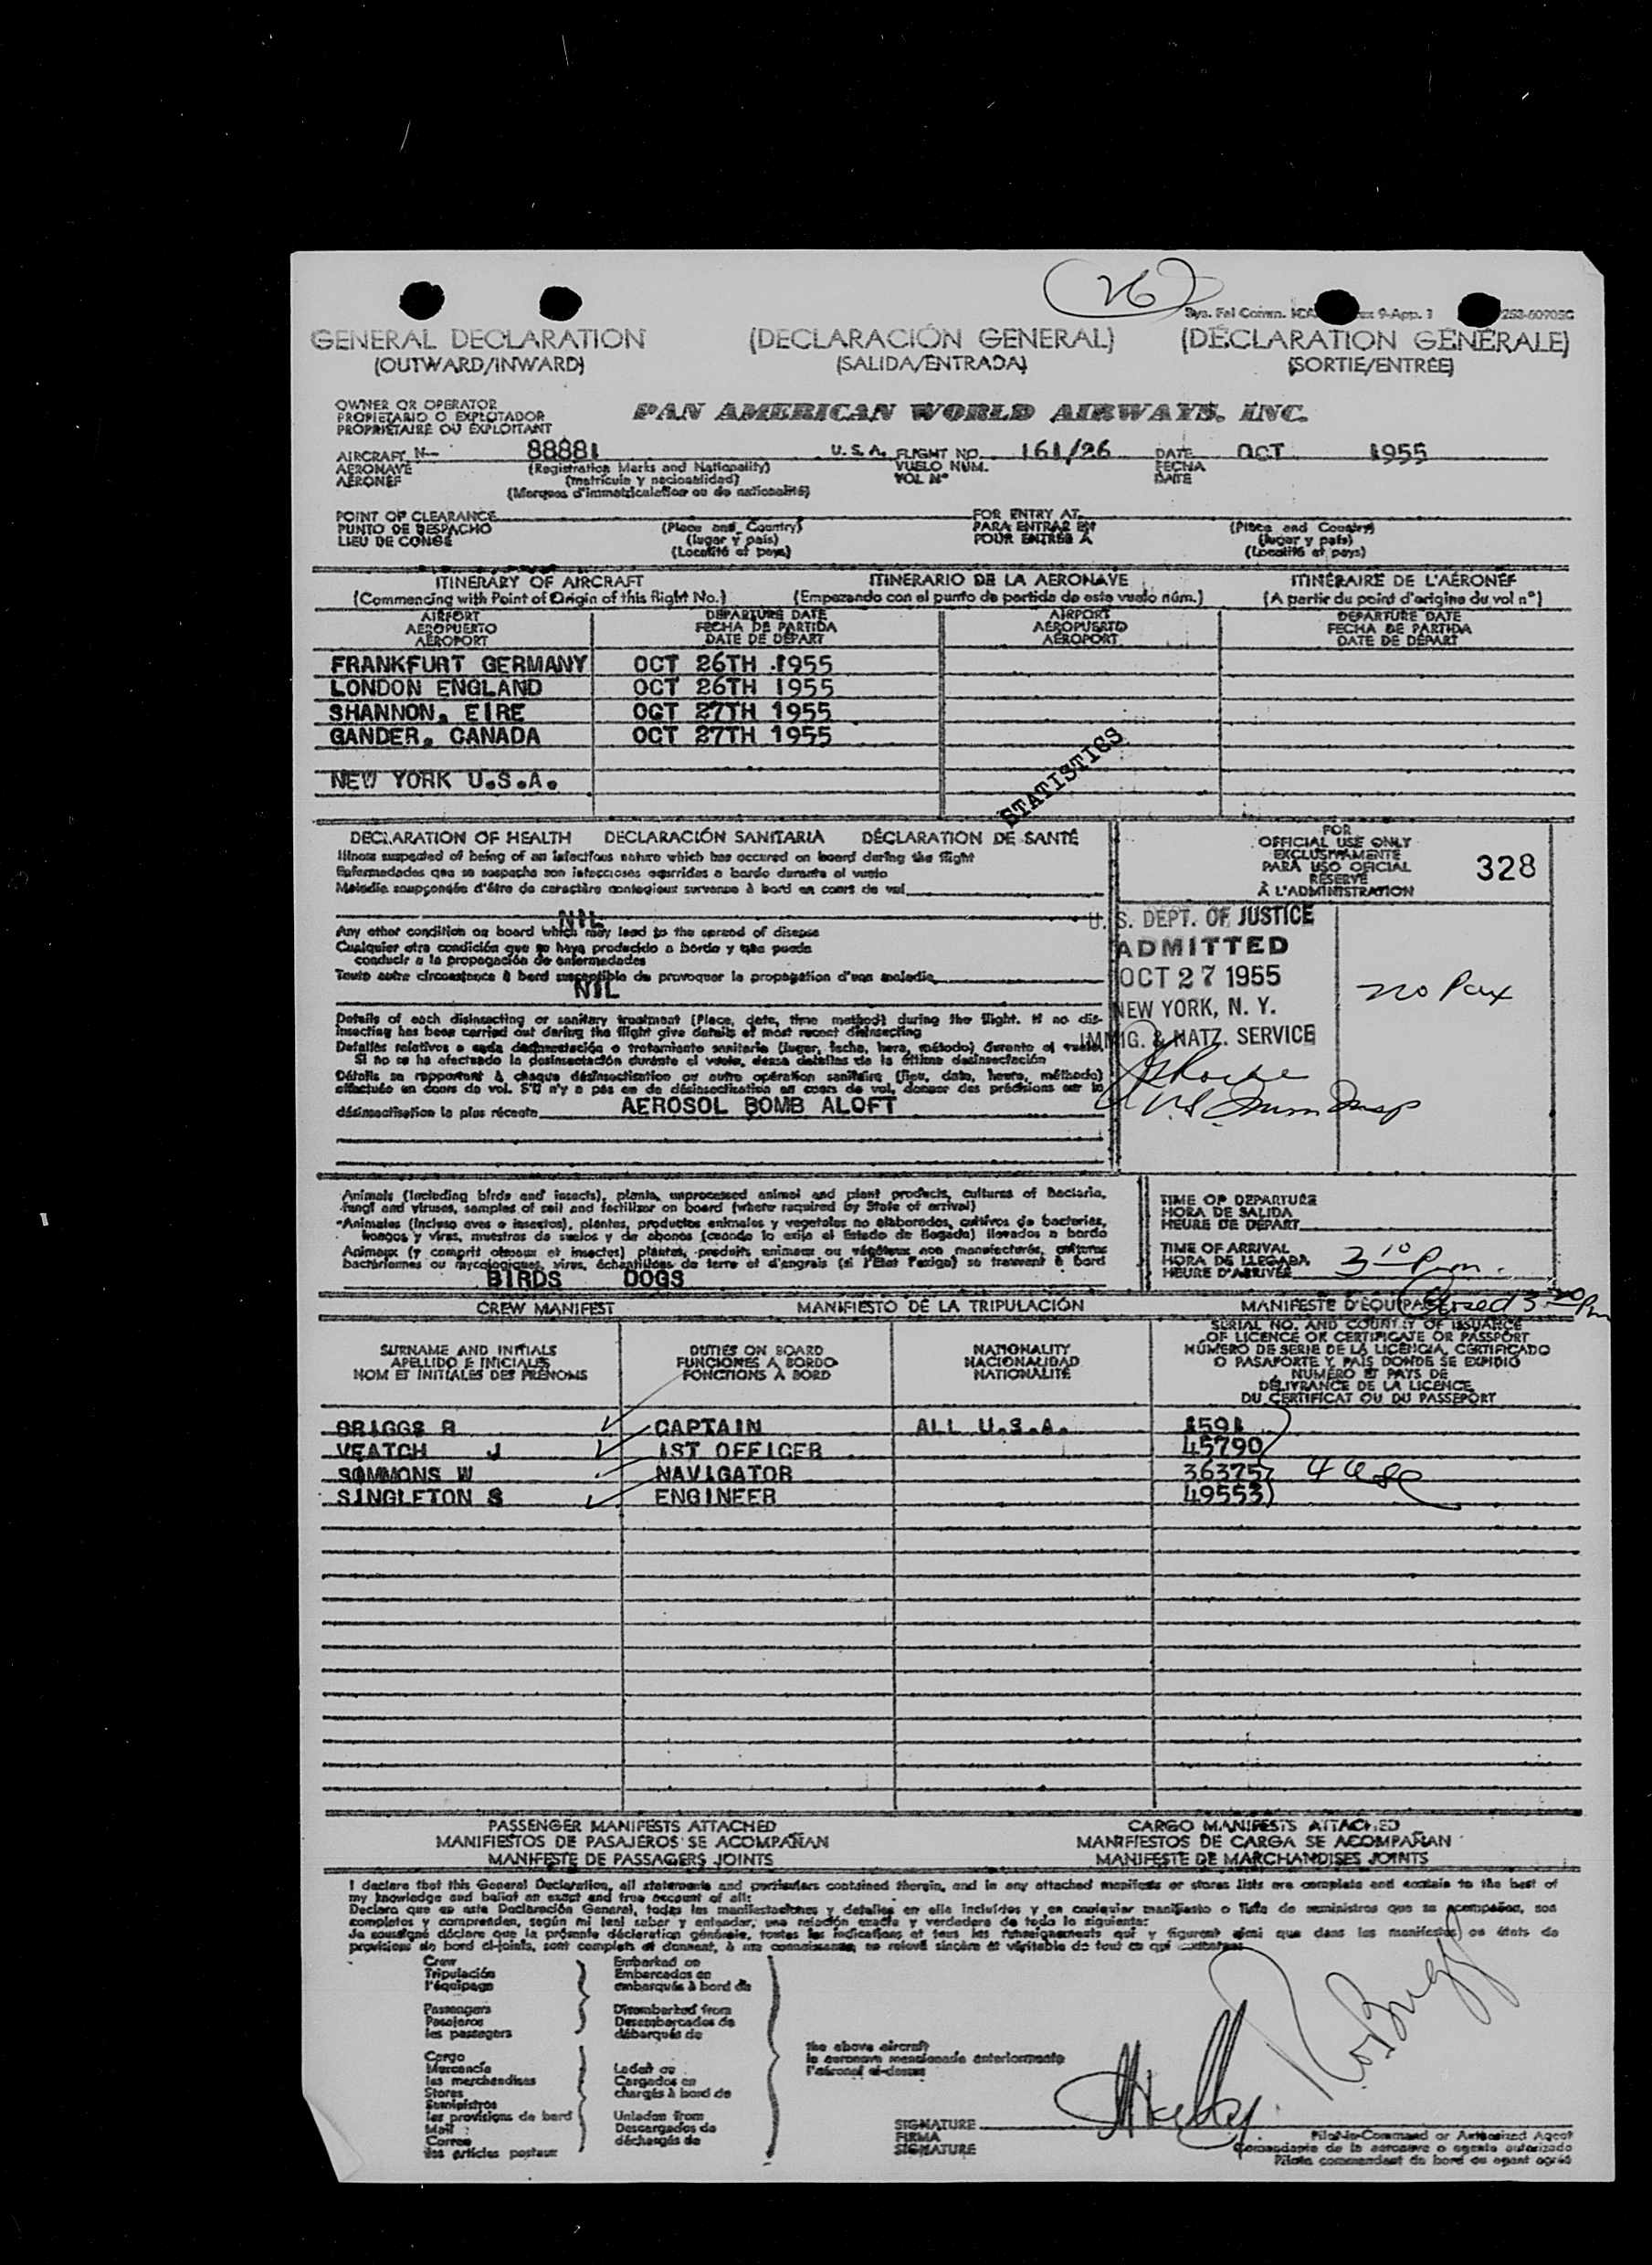 (26)
Sys. Fal Comm. 9-App. 1
GENERAL DECLARATION (DECLARACIÓN GENERAL) (DÉCLARATION GÉNÉRALE)
(OUTWARD/INWARD) (SALIDA/ENTRADA) (SORTIE/ENTRÉE)
OWNER OR OPERATOR
PROPIETARIO O EXPLOTADOR
PROPRIÉTAIRE OU EXPLOITANT
PAN AMERICAN WORLD AIRWAYS, INC.
AIRCRAFT N— 88881 U.S.A. FLIGHT NO. 161/26 DATE OCT 1955
AERONAVE (Registration Marks and Nationality) VUELO NÚM. FECHA
AÉRONEF (matrícula y nacionalidad) VOL Nº DATE
(Marques d'immatriculation ou de nationalité)
POINT OF CLEARANCE FOR ENTRY AT
PUNTO DE DESPACHO (Place and Country) PARA ENTRAR EN (Place and Country)
LIEU DE CONGÉ (lugar y país) POUR ENTRÉE À (lugar y país)
(Localité et pays) (Localité et pays)
ITINERARY OF AIRCRAFT ITINERARIO DE LA AERONAVE ITINÉRAIRE DE L'AÉRONEF
(Commencing with Point of Origin of this Flight No.) (Empezando con el punto de partida de este vuelo núm.) (A partir du point d'origine du vol nº)
AIRPORT DEPARTURE DATE AIRPORT DEPARTURE DATE
AEROPUERTO FECHA DE PARTIDA AEROPUERTO FECHA DE PARTIDA
AÉROPORT DATE DE DÉPART AÉROPORT DATE DE DÉPART
FRANKFURT GERMANY OCT 26TH 1955
LONDON ENGLAND OCT 26TH 1955
SHANNON, EIRE OCT 27TH 1955
GANDER, CANADA OCT 27TH 1955
NEW YORK U.S.A.
STATISTICS
DECLARATION OF HEALTH DECLARACIÓN SANITARIA DÉCLARATION DE SANTÉ
Illness suspected of being of an infectious nature which has occured on board during the flight
Enfermedades que se sospecha son infecciosas ocurridas a bordo durante el vuelo
Maladie soupçonnée d'être de caractère contagieux survenue à bord en cours de vol
NIL
Any other condition on board which may lead to the spread of disease
Cualquier otra condición que se haya producido a bordo y que pueda
conducir a la propagación de enfermedades
Toute autre circonstance à bord susceptible de provoquer la propagation d'une maladie
NIL
Details of each disinsecting or sanitary treatment (Place, date, time method) during the flight. If no dis-
insecting has been carried out during the flight give details of most recent disinsecting
Detalles relativos a cada desinsectación o tratamiento sanitario (lugar, fecha, hora, método) durante el vuelo.
Si no se ha efectuado la desinsectación durante el vuelo, dense detalles de la última desinsectación
Détails se rapportant à chaque désinsectisation ou autre opération sanitaire (lieu, date, heure, méthode)
effectuée en cours de vol. S'il n'y a pas eu de désinsectisation en cours de vol, donner des précisions sur la
désinsectisation la plus récente AEROSOL BOMB ALOFT
FOR
OFFICIAL USE ONLY
EXCLUSIVAMENTE
PARA USO OFICIAL
RÉSERVÉ
À L'ADMINISTRATION
328
U.S. DEPT. OF JUSTICE
ADMITTED
OCT 27 1955
NEW YORK, N. Y.
IMMIG. & NATZ. SERVICE
no Pax
U.S. Imm Insp
Animals (including birds and insects), plants, unprocessed animal and plant products, cultures of bacteria,
fungi and viruses, samples of soil and fertilizer on board (where required by State of arrival)
Animales (incluso aves e insectos), plantas, productos animales y vegetales no elaborados, cultivos de bacterias,
hongos y virus, muestras de suelos y de abonos (cuando lo exija el Estado de llegada) llevados a bordo
Animaux (y compris oiseaux et insectes) plantes, produits animaux ou végétaux non manufacturés, cultures
bactériennes ou mycologiques, virus, échantillons de terre et d'engrais (si l'Etat l'exige) se trouvant à bord
BIRDS DOGS
TIME OF DEPARTURE
HORA DE SALIDA
HEURE DE DÉPART
TIME OF ARRIVAL
HORA DE LLEGADA
HEURE D'ARRIVÉE 3 10 P.m.
Closed 3 20 Pm
CREW MANIFEST MANIFIESTO DE LA TRIPULACIÓN MANIFESTE D'ÉQUIPAGE
SURNAME AND INITIALS
APELLIDO E INICIALES
NOM ET INITIALES DES PRÉNOMS
DUTIES ON BOARD
FUNCIONES A BORDO
FONCTIONS À BORD
NATIONALITY
NACIONALIDAD
NATIONALITÉ
SERIAL NO. AND COUNTRY OF ISSUANCE
OF LICENCE OR CERTIFICATE OR PASSPORT
NÚMERO DE SERIE DE LA LICENCIA, CERTIFICADO
O PASAPORTE Y PAÍS DONDE SE EXPIDIÓ
NUMÉRO ET PAYS DE
DÉLIVRANCE DE LA LICENCE
DU CERTIFICAT OU DU PASSEPORT
BRIGGS R CAPTAIN ALL U.S.A. 1591
VEATCH J 1ST OFFICER 45790
SOMMONS W NAVIGATOR 36375
SINGLETON S ENGINEER 49553
PASSENGER MANIFESTS ATTACHED CARGO MANIFESTS ATTACHED
MANIFIESTOS DE PASAJEROS SE ACOMPAÑAN MANIFIESTOS DE CARGA SE ACOMPAÑAN
MANIFESTE DE PASSAGERS JOINTS MANIFESTE DE MARCHANDISES JOINTS
I declare that this General Declaration, all statements and particulars contained therein, and in any attached manifests or stores lists are complete and contain to the best of
my knowledge and belief an exact and true account of all:
Declaro que en esta Declaración General, todas las manifestaciones y detalles en ella incluídos y en cualquier manifiesto o lista de suministros que se acompañan, son
completos y comprenden, según mi leal saber y entender, una relación exacta y verdadera de todo lo siguiente:
Je soussigné déclare que la présente déclaration générale, toutes les indications et tous les renseignements qui y figurent ainsi que dans les manifestes ou états de
provisions de bord ci-joints, sont complets et donnent, à ma connaissance, un relevé sincère et véritable de tout ce qui
Crew
Tripulación
l'équipage
Passengers
Pasajeros
les passagers
Embarked on
Embarcados en
embarqués à bord de
Disembarked from
Desembarcados de
débarqués de
Cargo
Mercancía
les marchandises
Stores
Suministros
les provisions de bord
Mail
Correo
les articles postaux
Laden on
Cargados en
chargés à bord de
Unladen from
Descargados de
déchargés de
the above aircraft
la aeronave mencionada anteriormente
l'aéronef ci-dessus
SIGNATURE
FIRMA
SIGNATURE
Pilot-in-Command or Authorized Agent
Comandante de la aeronave o agente autorizado
Pilote commandant de bord ou agent agréé